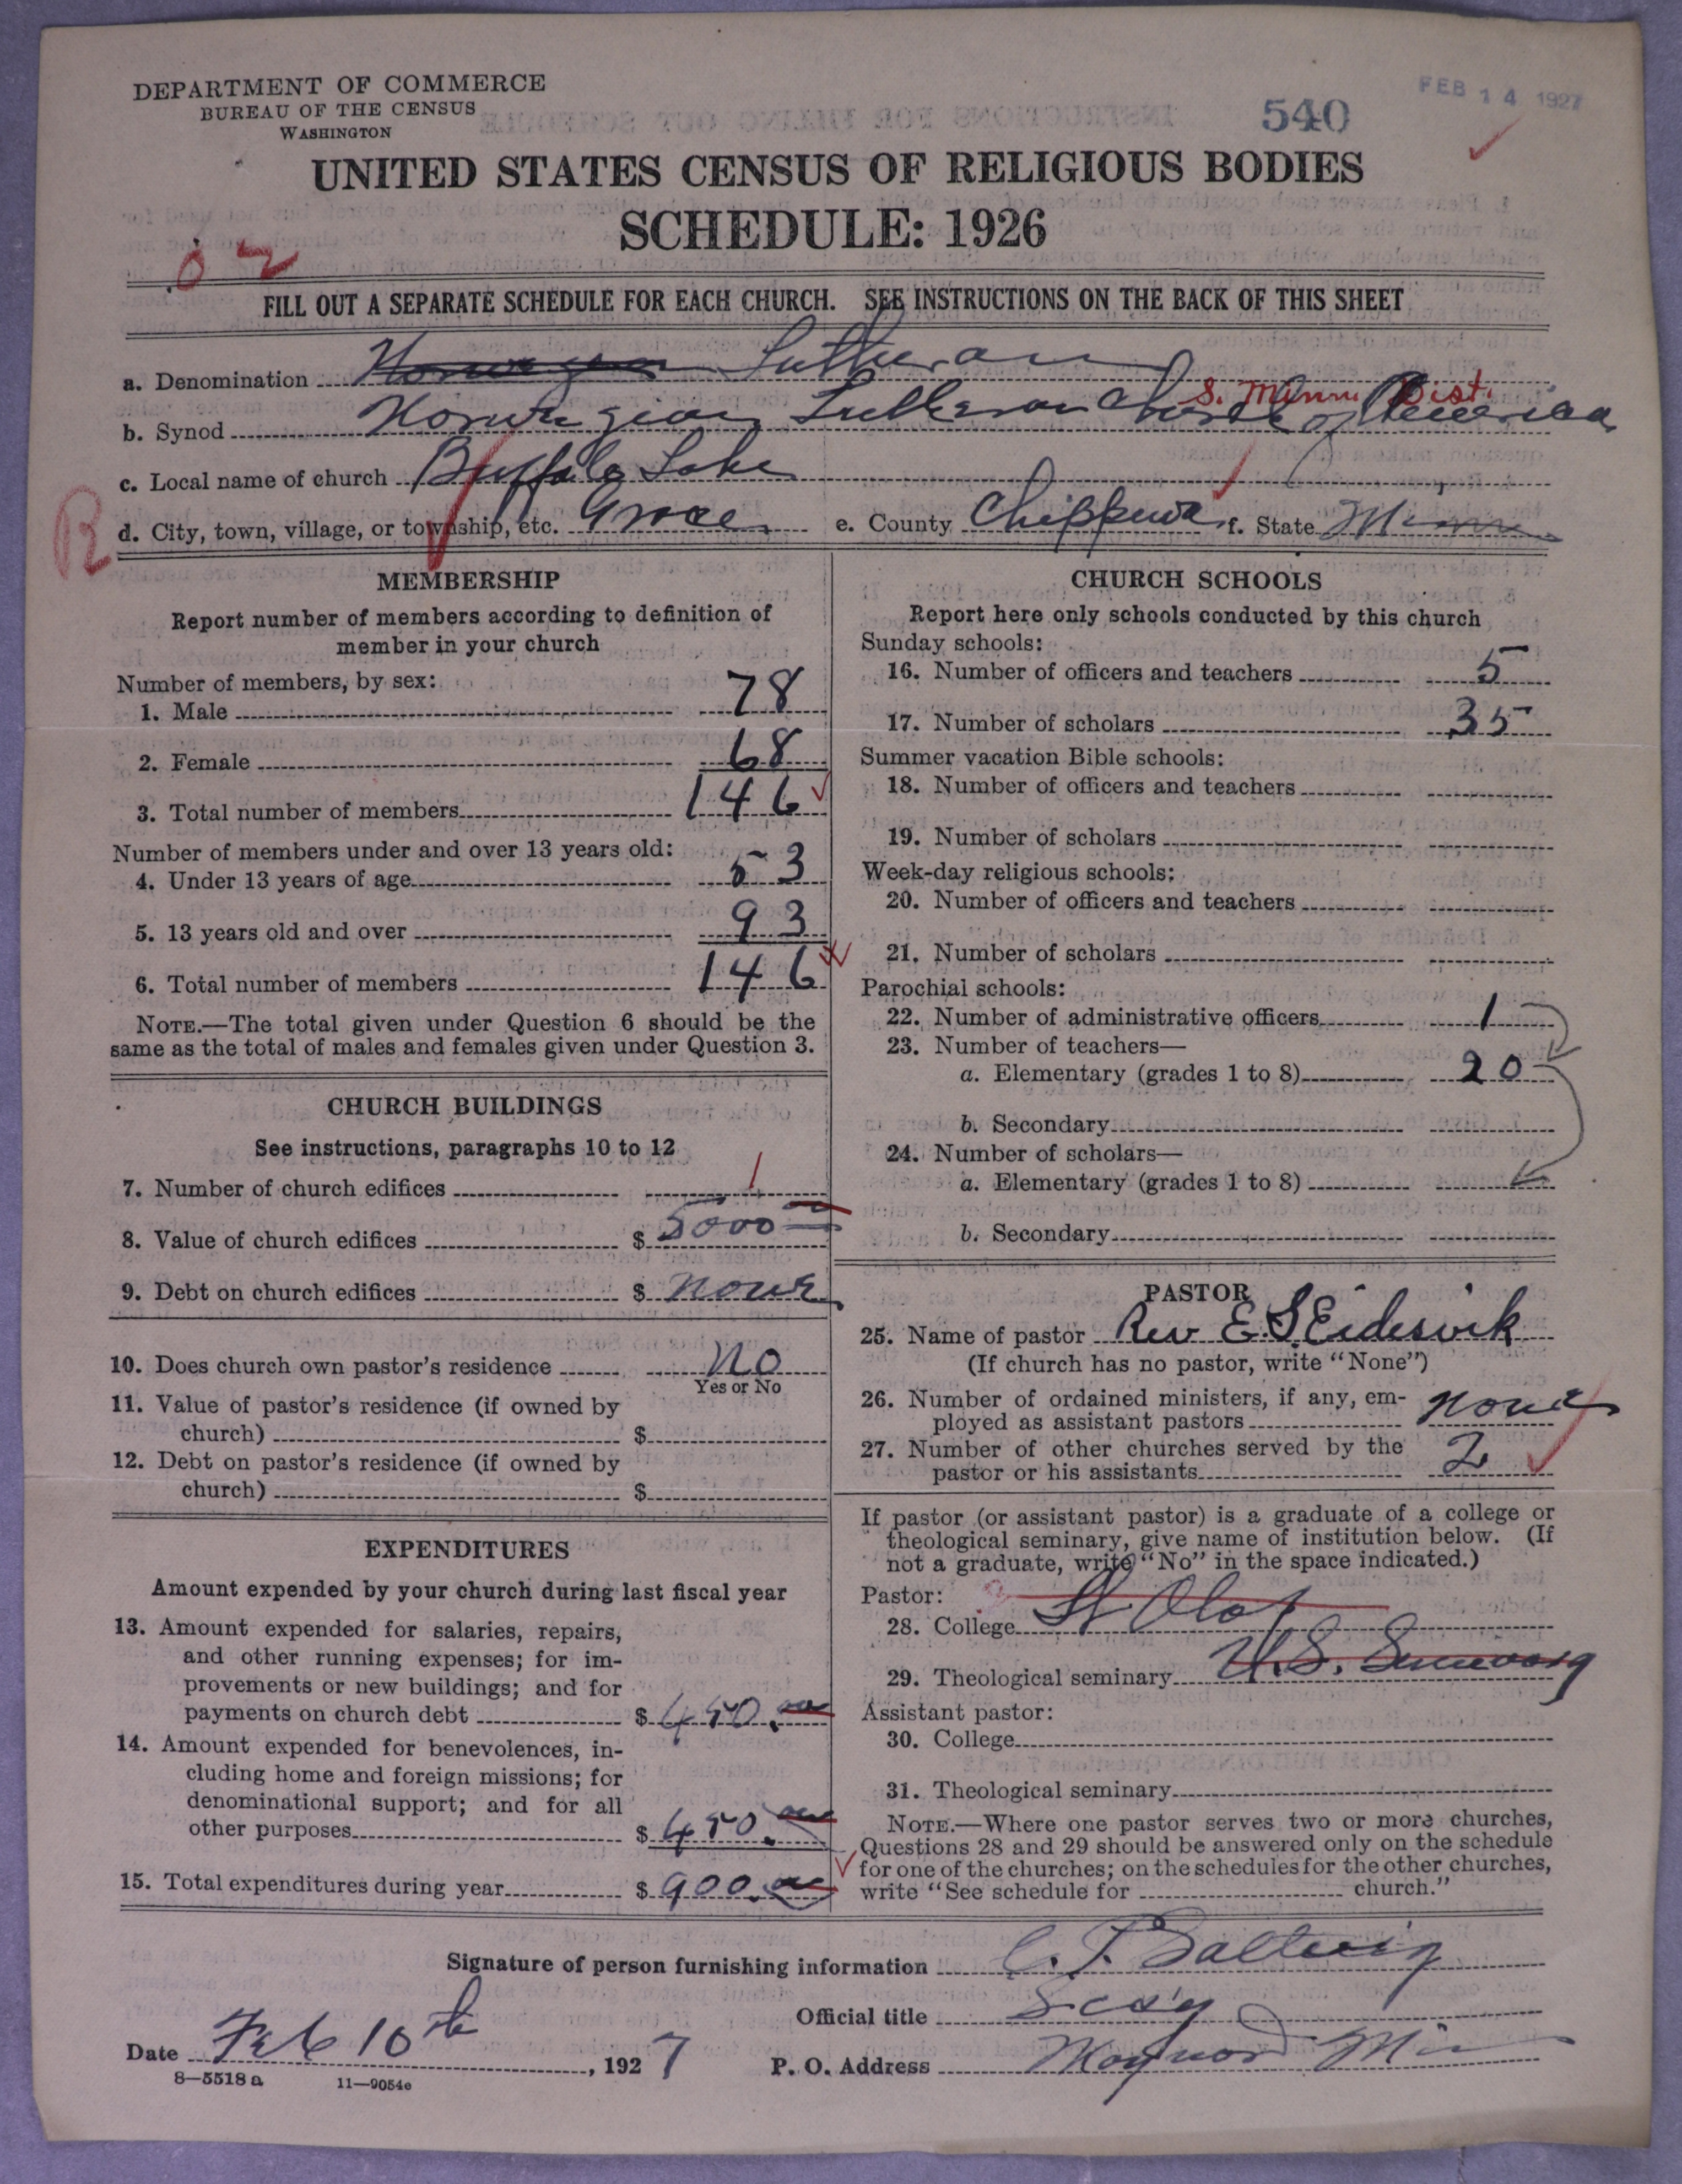 DEPARTMENT OF COMMERCE
BUREAU OF THE CENSUS
WASHINGTON
540
FEB 14 1927
UNITED STATES CENSUS OF RELIGIOUS BODIES
SCHEDULE: 1926
02
FILL OUT A SEPARATE SCHEDULE FOR EACH CHURCH. SEE INSTRUCTIONS ON THE BACK OF THIS SHEET
a. Denomination Norwegian Lutheran
S. Minn. Dist.
b. Synod Norwegian Lutheran Church of America
c. Local name of church Buffalo Lake
R
d. City, town, village, or township, etc. Grace e. County Chippewa f. State Minn
MEMBERSHIP
Report number of members according to definition of
member in your church
Number of members, by sex:
1. Male 78
2. Female 68
3. Total number of members 146
Number of members under and over 13 years old:
4. Under 13 years of age 53
5. 13 years old and over 93
6. Total number of members 146
NOTE.—The total given under Question 6 should be the
same as the total of males and females given under Question 3.
CHURCH BUILDINGS
See instructions, paragraphs 10 to 12
7. Number of church edifices 1
8. Value of church edifices $ 5000
9. Debt on church edifices $ none
10. Does church own pastor's residence no
Yes or No
11. Value of pastor's residence (if owned by
church) $
12. Debt on pastor's residence (if owned by
church) $
EXPENDITURES
Amount expended by your church during last fiscal year
13. Amount expended for salaries, repairs,
and other running expenses; for im-
provements or new buildings; and for
payments on church debt $ 450.00
14. Amount expended for benevolences, in-
cluding home and foreign missions; for
denominational support; and for all
other purposes $ 450.00
15. Total expenditures during year $ 900.00
CHURCH SCHOOLS
Report here only schools conducted by this church
Sunday schools:
16. Number of officers and teachers 5
17. Number of scholars 35
Summer vacation Bible schools:
18. Number of officers and teachers
19. Number of scholars
Week-day religious schools:
20. Number of officers and teachers
21. Number of scholars
Parochial schools:
22. Number of administrative officers 1
23. Number of teachers—
a. Elementary (grades 1 to 8) 20
b. Secondary
24. Number of scholars—
a. Elementary (grades 1 to 8)
b. Secondary
PASTOR
25. Name of pastor Rev E. S Eidesvik
(If church has no pastor, write "None")
26. Number of ordained ministers, if any, em-
ployed as assistant pastors none
27. Number of other churches served by the
pastor or his assistants 2
If pastor (or assistant pastor) is a graduate of a college or
theological seminary, give name of institution below. (If
not a graduate, write "No" in the space indicated.)
Pastor:
28. College St Olaf
29. Theological seminary Seminary
Assistant pastor:
30. College
31. Theological seminary
NOTE.—Where one pastor serves two or more churches,
Questions 28 and 29 should be answered only on the schedule
for one of the churches; on the schedules for the other churches,
write "See schedule for church."
Signature of person furnishing information
Official title Secy
Date Feb 10th, 1927 P. O. Address Maynard Min
8—5518a 11—9054e